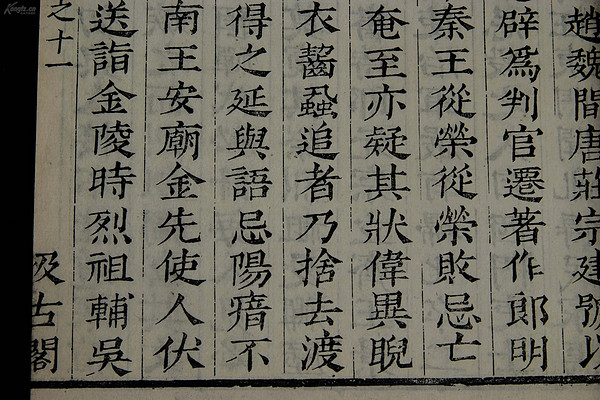 趙魏間唐莊宗建號以
辟爲判官遷著作郎明
秦王從榮從榮敗忌亡
奄至亦疑其狀偉異睨
衣齧蝨追者乃捨去渡
得之延與語忌陽瘖不
南王安廟金先使人伏
送詣金陵時烈祖輔吳
之十一
汲古閣